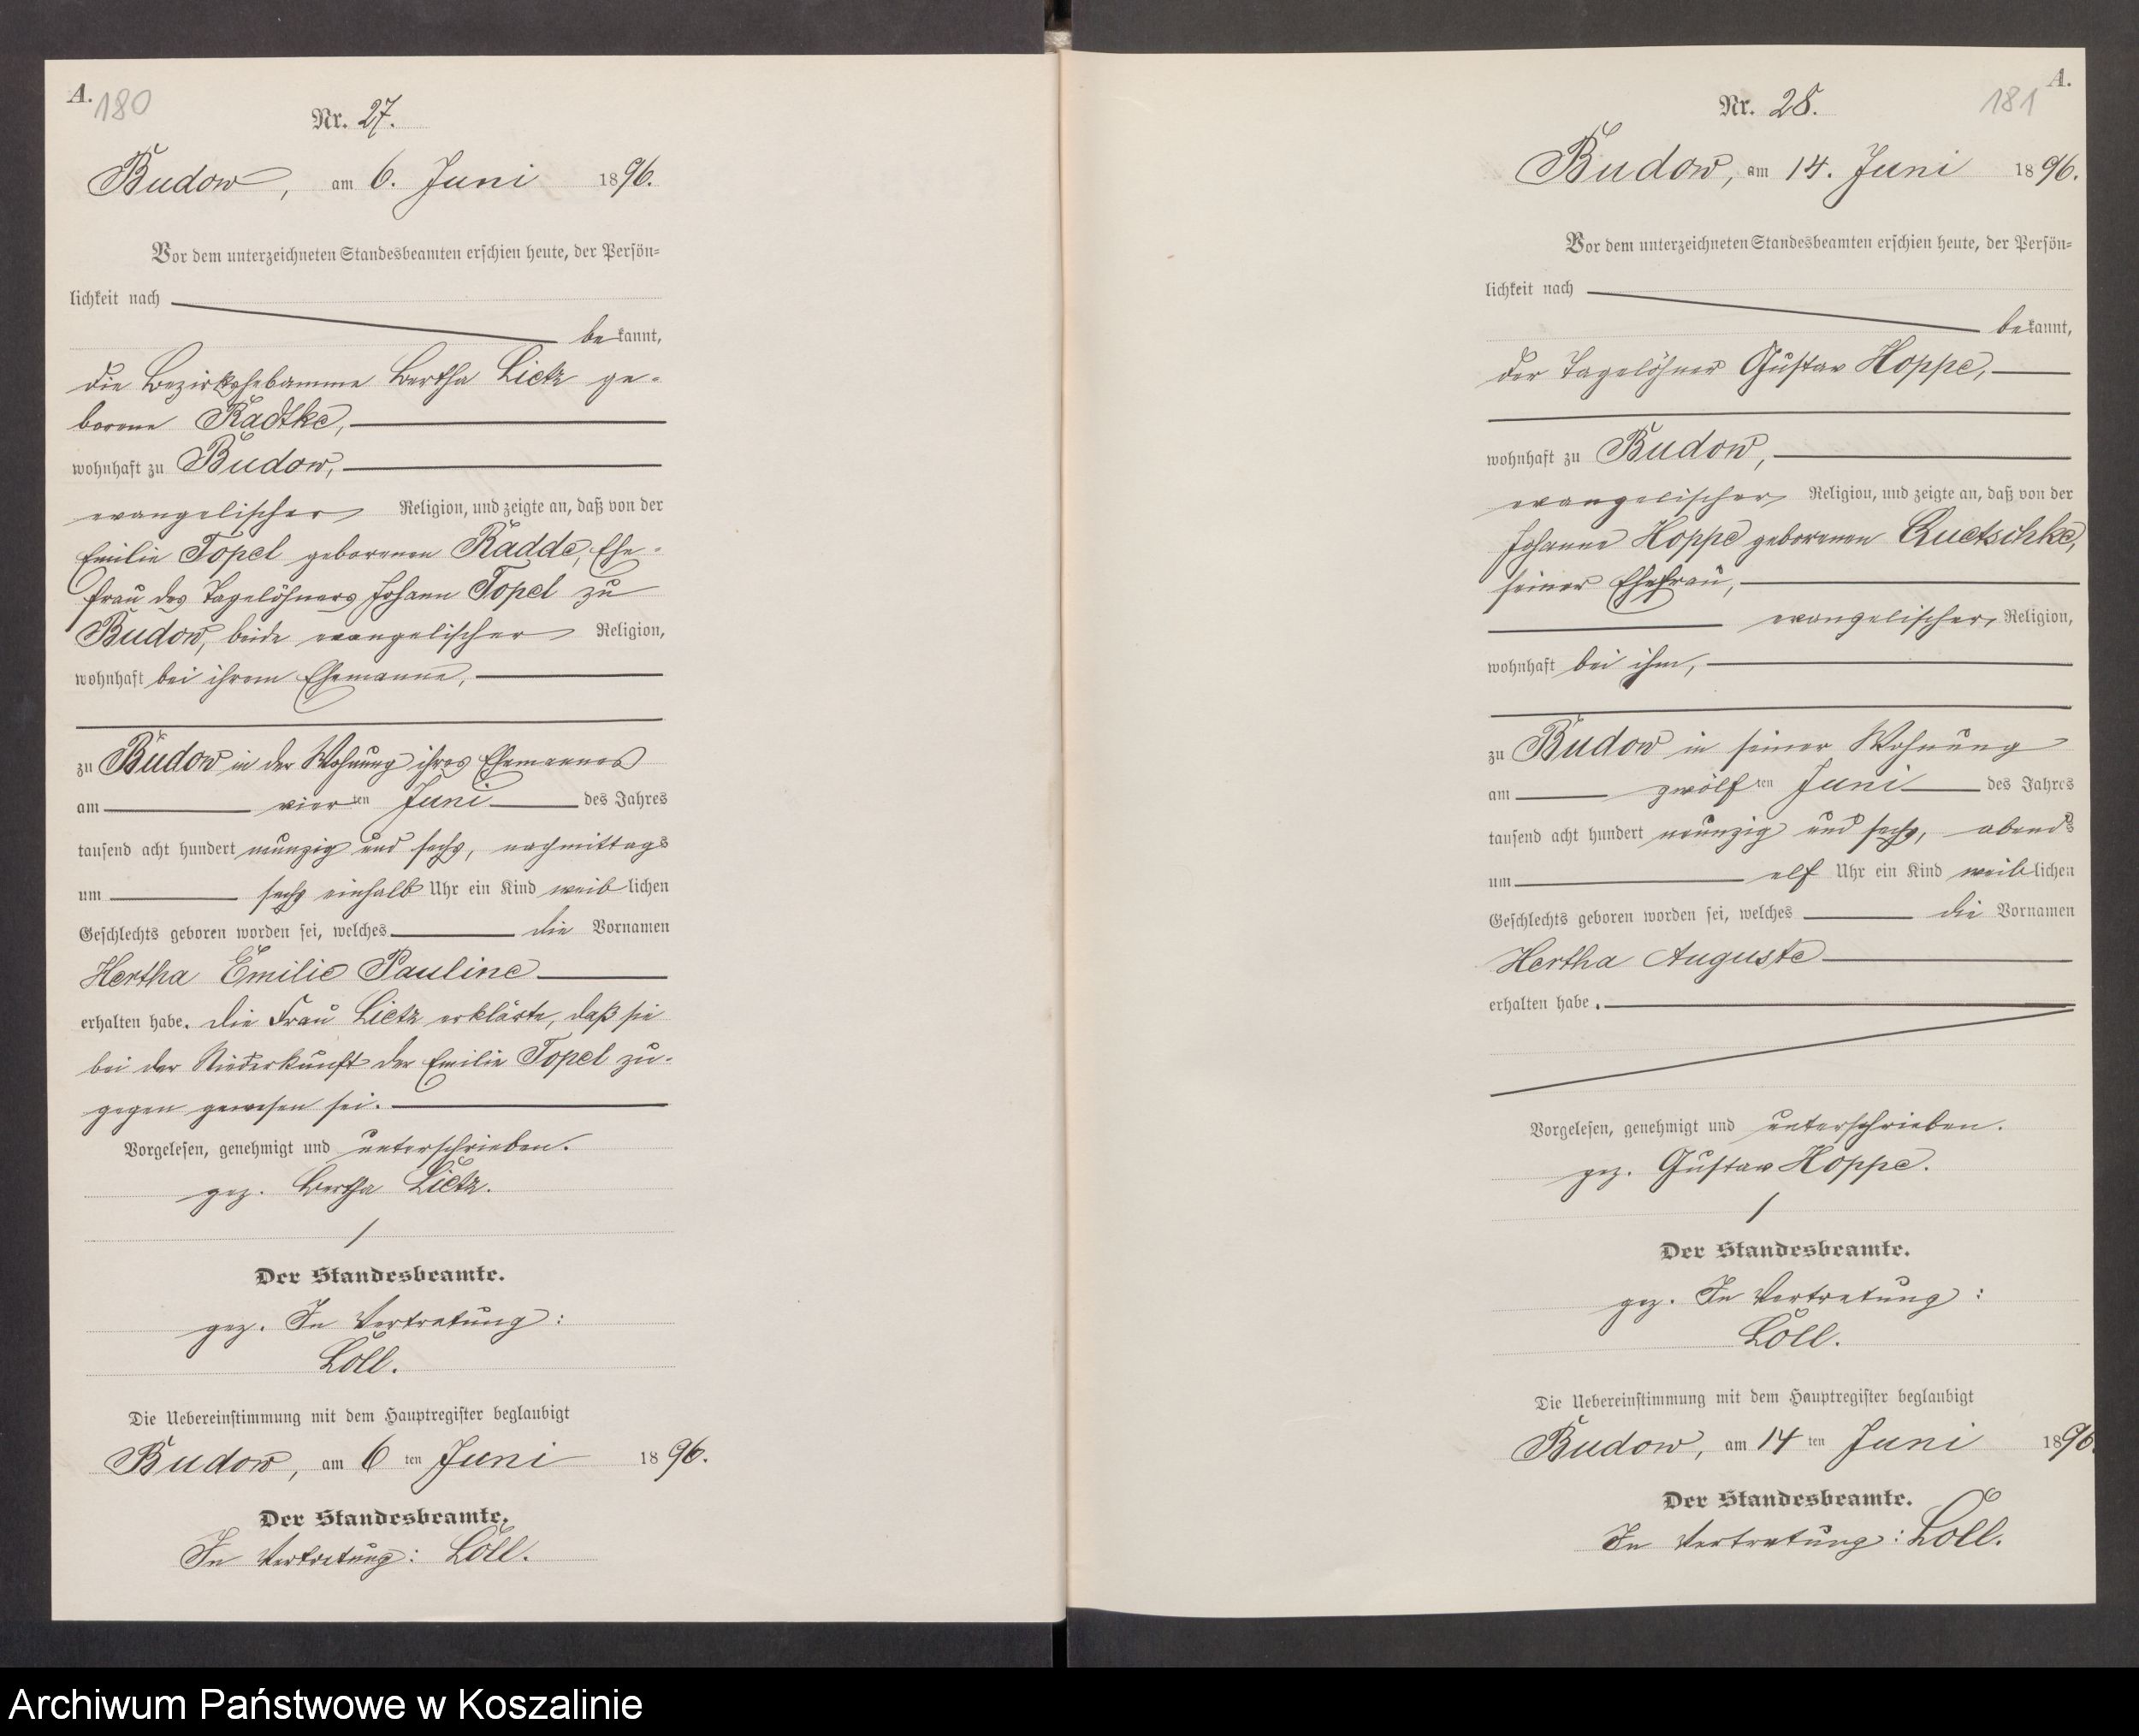 A. 180
Nr. 27.
Budow, am 6. Juni 1896.
Vor dem unterzeichneten Standesbeamten erschien heute, der Persön-
lichkeit nach
bekannt,
die Bezirkshebamme Bertha Lietz ge-
borene Radtke,
wohnhaft zu Budow,
evangelischer Religion, und zeigte an, daß von der
Emilie Topel geborenen Radde, Ehe-
frau des Tagelöhners Johann Topel zu
Budow, beide evangelischer Religion,
wohnhaft bei ihrem Ehemanne,
zu Budow in der Wohnung ihres Ehemannes
am vierten Juni des Jahres
tausend acht hundert neunzig und sechs, nachmittags
um sechs einhalb Uhr ein Kind weiblichen
Geschlechts geboren worden sei, welches die Vornamen
Hertha Emilie Pauline
erhalten habe. Die Frau Lietz erklärte, daß sie
bei der Niederkunft der Emilie Topel zu-
gegen gewesen sei.
Vorgelesen, genehmigt und unterschrieben.
gez. Bertha Lietz.
Der Standesbeamte.
gez. In Vertretung:
Löll.
Die Uebereinstimmung mit dem Hauptregister beglaubigt
Budow, am 6ten Juni 1896.
Der Standesbeamte.
In Vertretung: Löll.
181 A.
Nr. 28.
Budow, am 14. Juni 1896.
Vor dem unterzeichneten Standesbeamten erschien heute, der Persön-
lichkeit nach
bekannt,
der Tagelöhner Gustav Hoppe,
wohnhaft zu Budow,
evangelischer Religion, und zeigte an, daß von der
Johanne Hoppe geborenen Quetschke,
seiner Ehefrau,
evangelischer Religion,
wohnhaft bei ihm,
zu Budow in seiner Wohnung
am zwölften Juni des Jahres
tausend acht hundert neunzig und sechs, abends
um elf Uhr ein Kind weiblichen
Geschlechts geboren worden sei, welches die Vornamen
Hertha Auguste
erhalten habe.
Vorgelesen, genehmigt und unterschrieben.
gez. Gustav Hoppe.
Der Standesbeamte.
gez. In Vertretung:
Löll.
Die Uebereinstimmung mit dem Hauptregister beglaubigt
Budow, am 14ten Juni 1896
Der Standesbeamte.
In Vertretung: Löll.
Archiwum Państwowe w Koszalinie